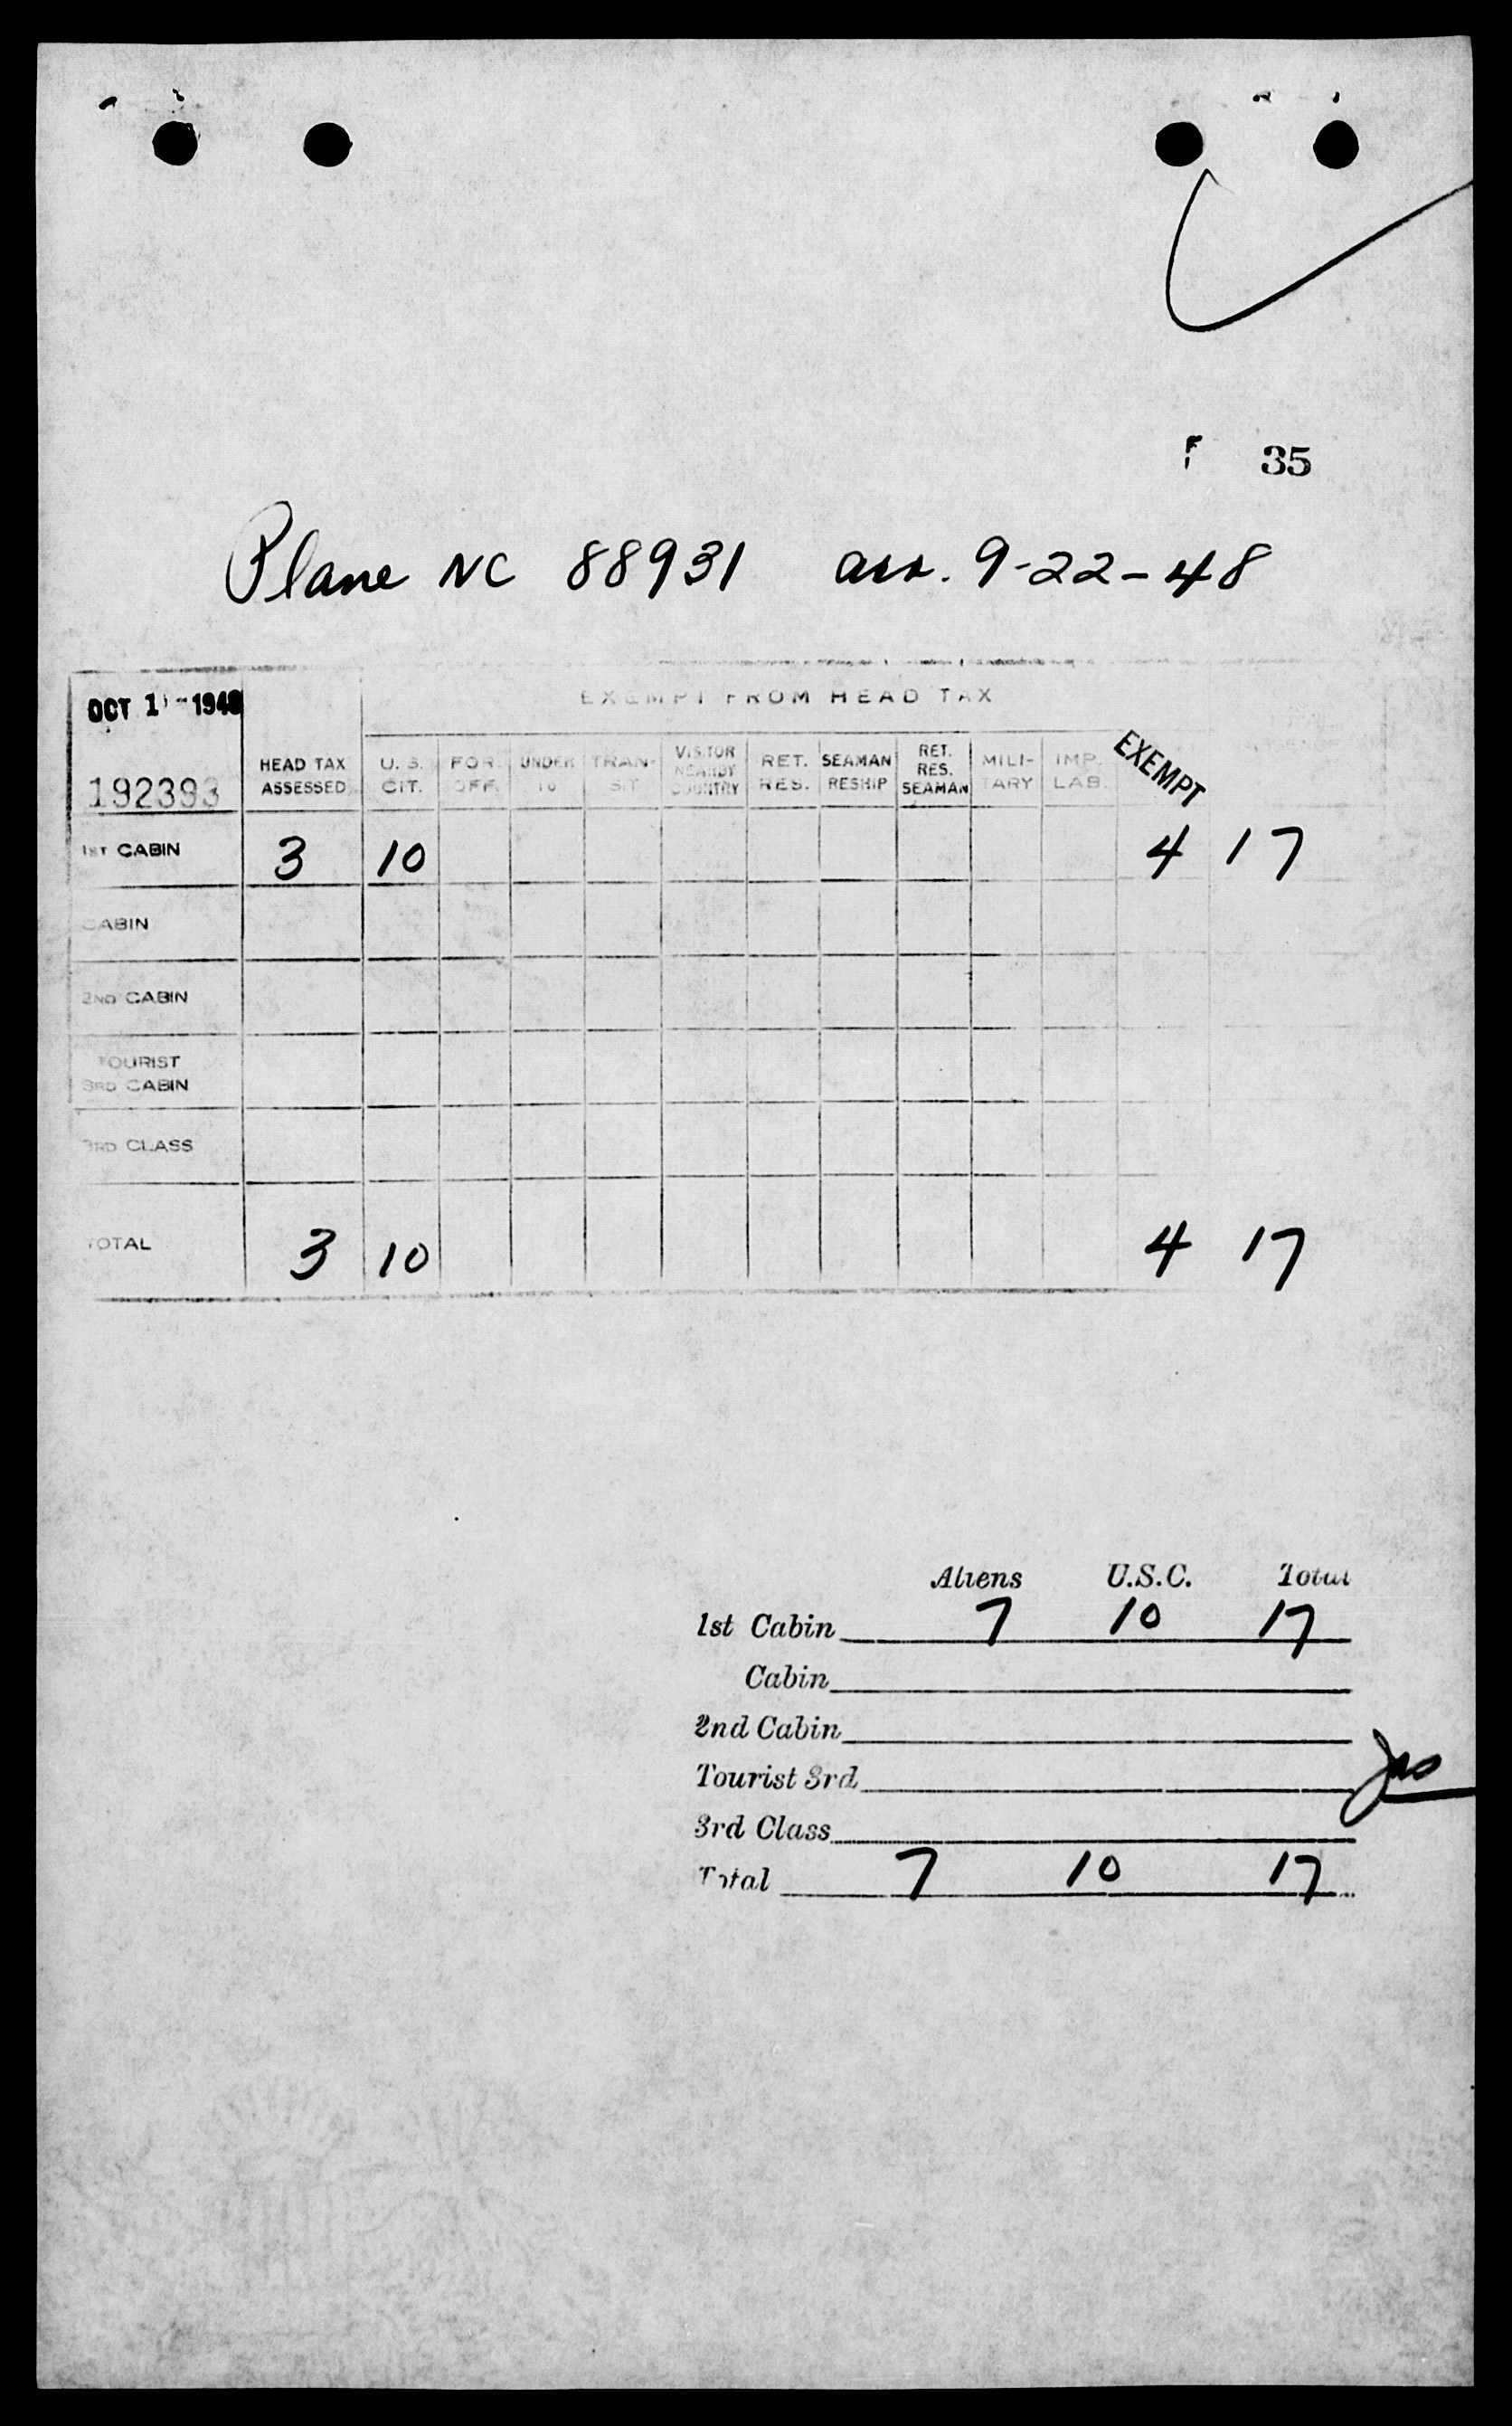 35
Plane NC 88931 arr. 9-22-48
OCT 1 - 1948
EXEMPT FROM HEAD TAX
192393
HEAD TAX ASSESSED U. S. CIT. FOR. OFF. UNDER 16 TRAN-SIT VISITOR NEARBY COUNTRY RET. RES. SEAMAN RESHIP RET. RES. SEAMAN MILI-TARY IMP. LAB. EXEMPT
1ST CABIN 3 10 4 17
CABIN
2ND CABIN
TOURIST
3RD CABIN
3RD CLASS
TOTAL 3 10 4 17
Aliens U.S.C. Total
1st Cabin 7 10 17
Cabin
2nd Cabin
Tourist 3rd
3rd Class
Total 7 10 17